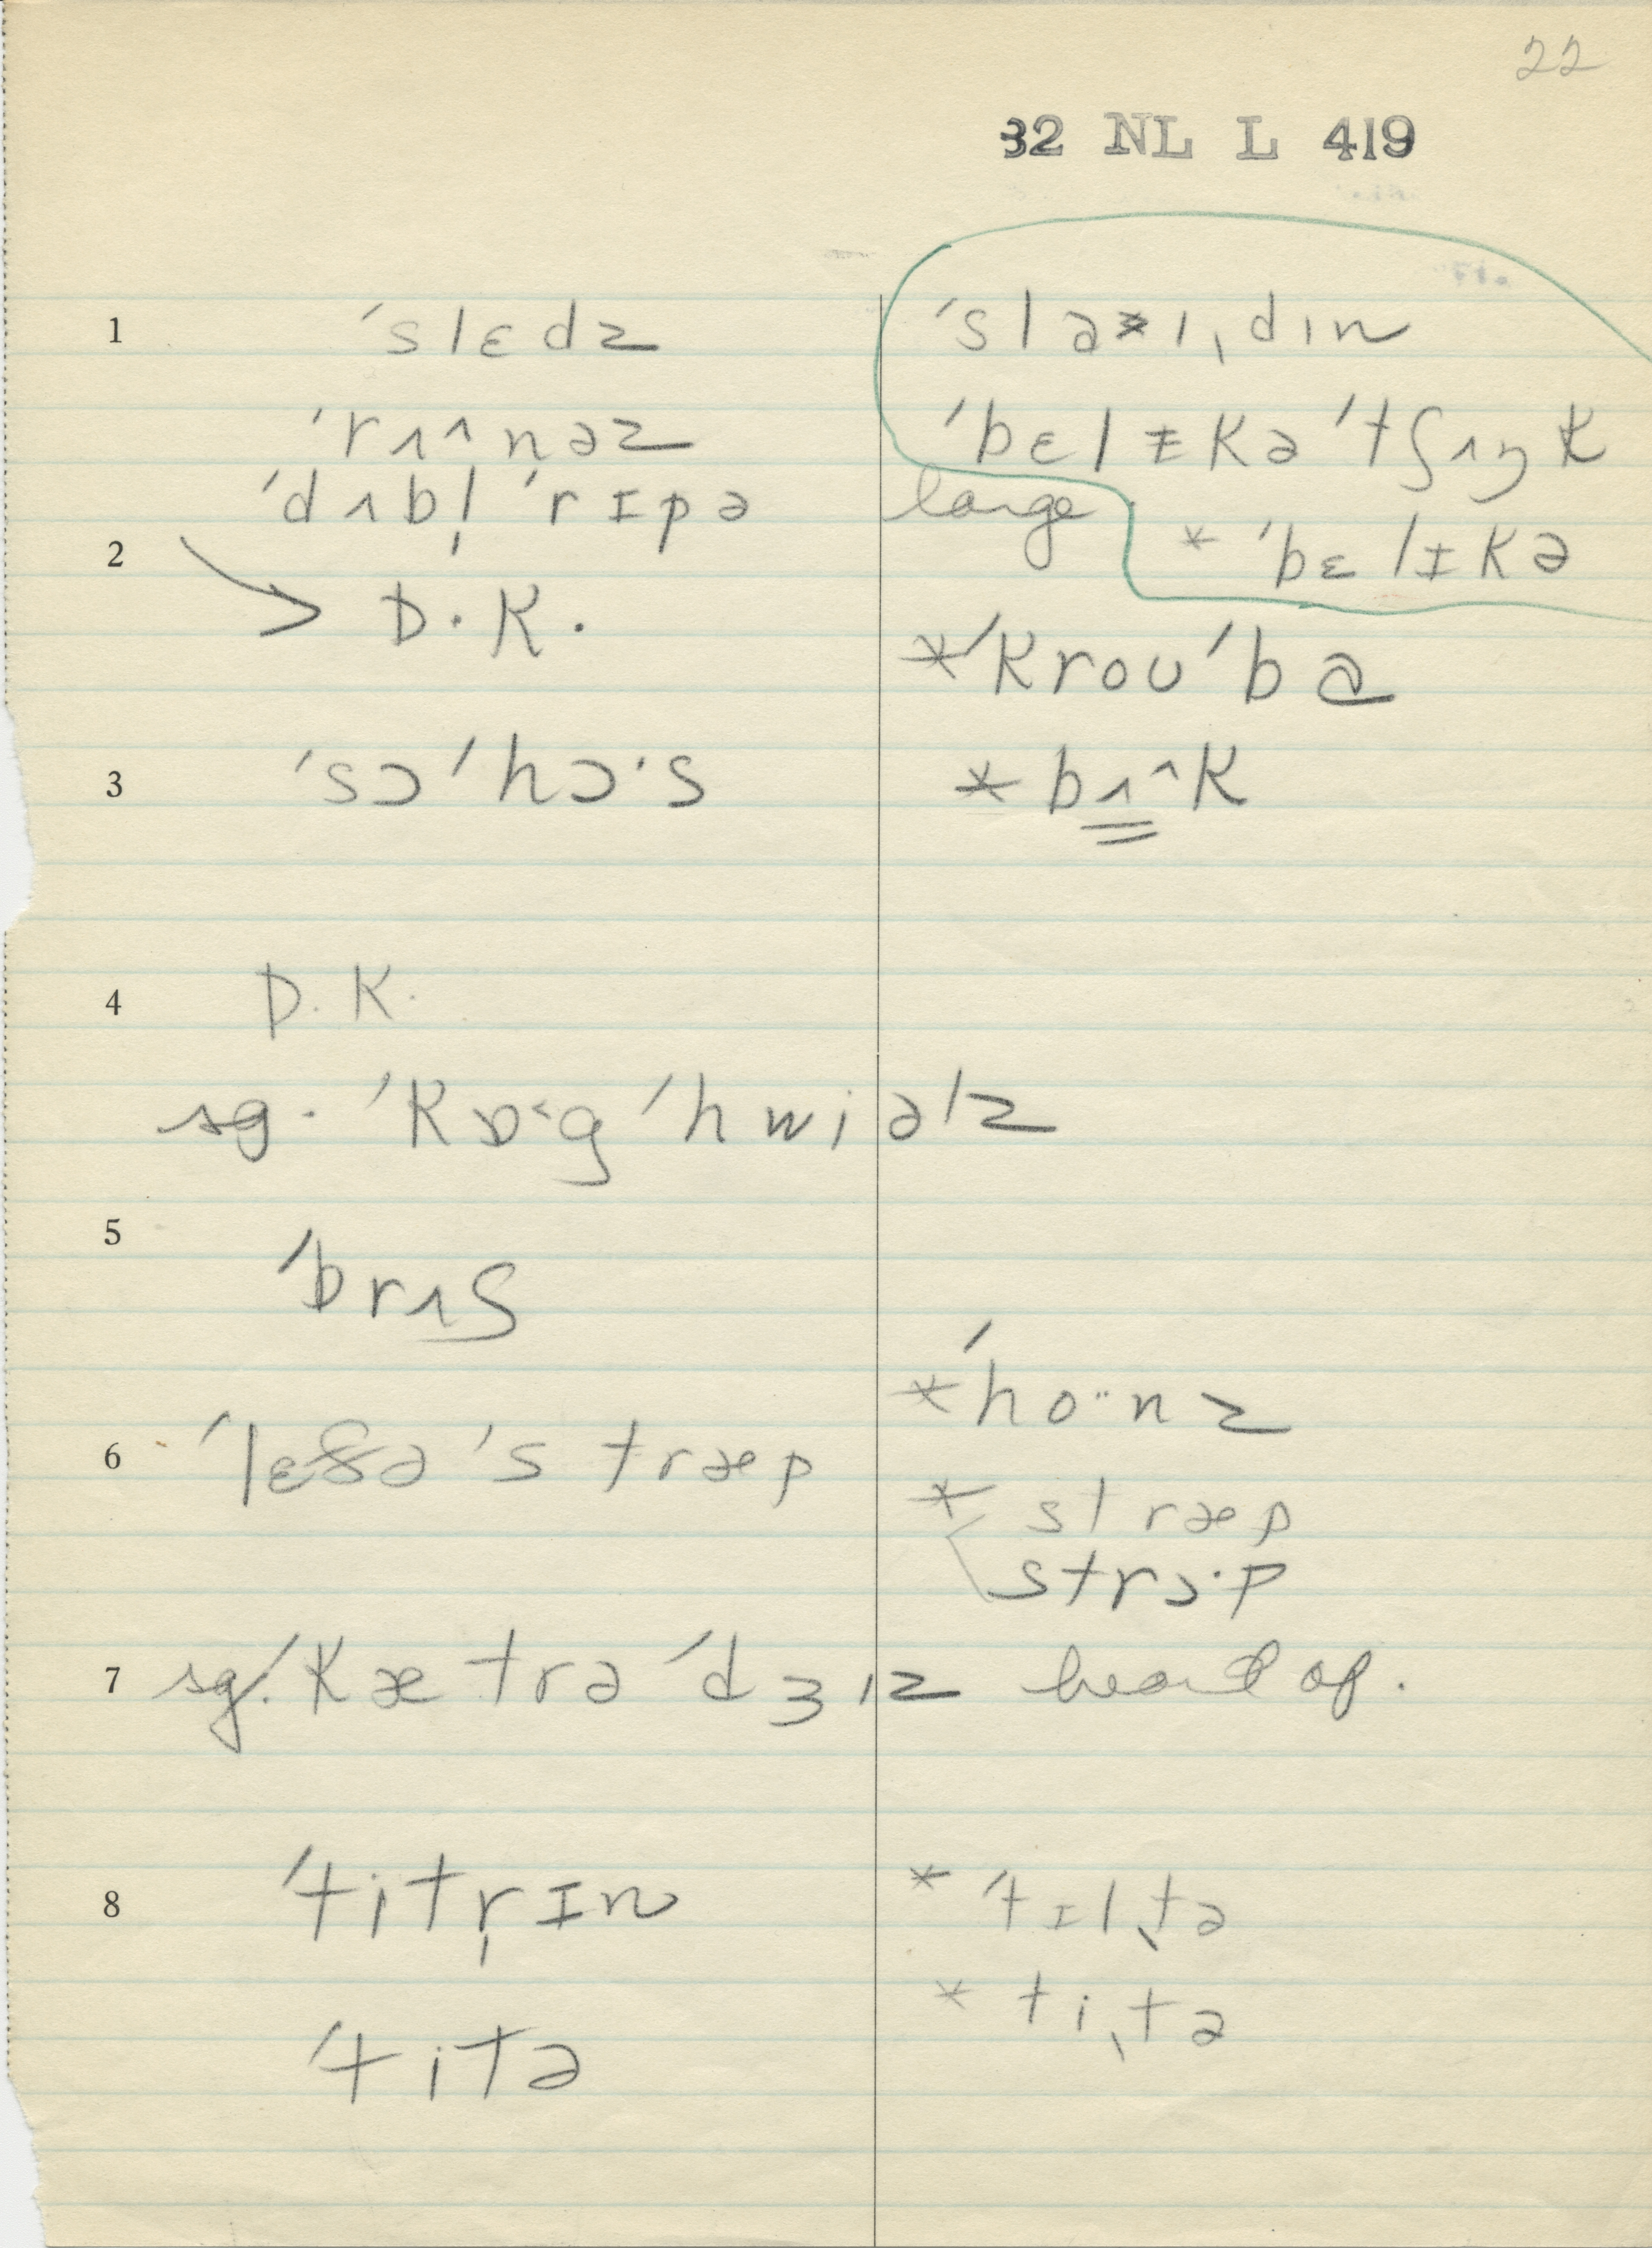 22
32 NL L 419
1 ˈslɛdz
ˈslaɪˌdɪn
ˈrʌ^nəz
ˈbɛlɪkə ˈtʃʌŋk
ˈdʌbl̩ ˈrɪpə
large
* ˈbɛlɪkə
2 → D.K.
* ˈkroʊˈbɑ
3 ˈsɔ ˈhɔ·s
* bʌ^k
4 D.K.
sg. ˈkɒ·g ˈhwiəlz
5 ˈbrʌʃ
* ˈho··nz
6 ˈlɛðə ˈstræp
* stræp
strɔ·p
7 sg. ˈkætrəˈdʒɪz heard of.
8 ˈtitr̩ɪn
* ˈtɪlˌtə
* tiˌtə
ˈtitə